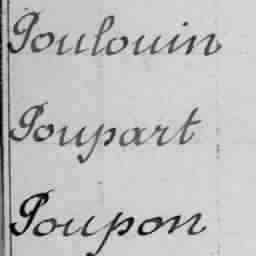 Poulouin
Poupart
Poupon